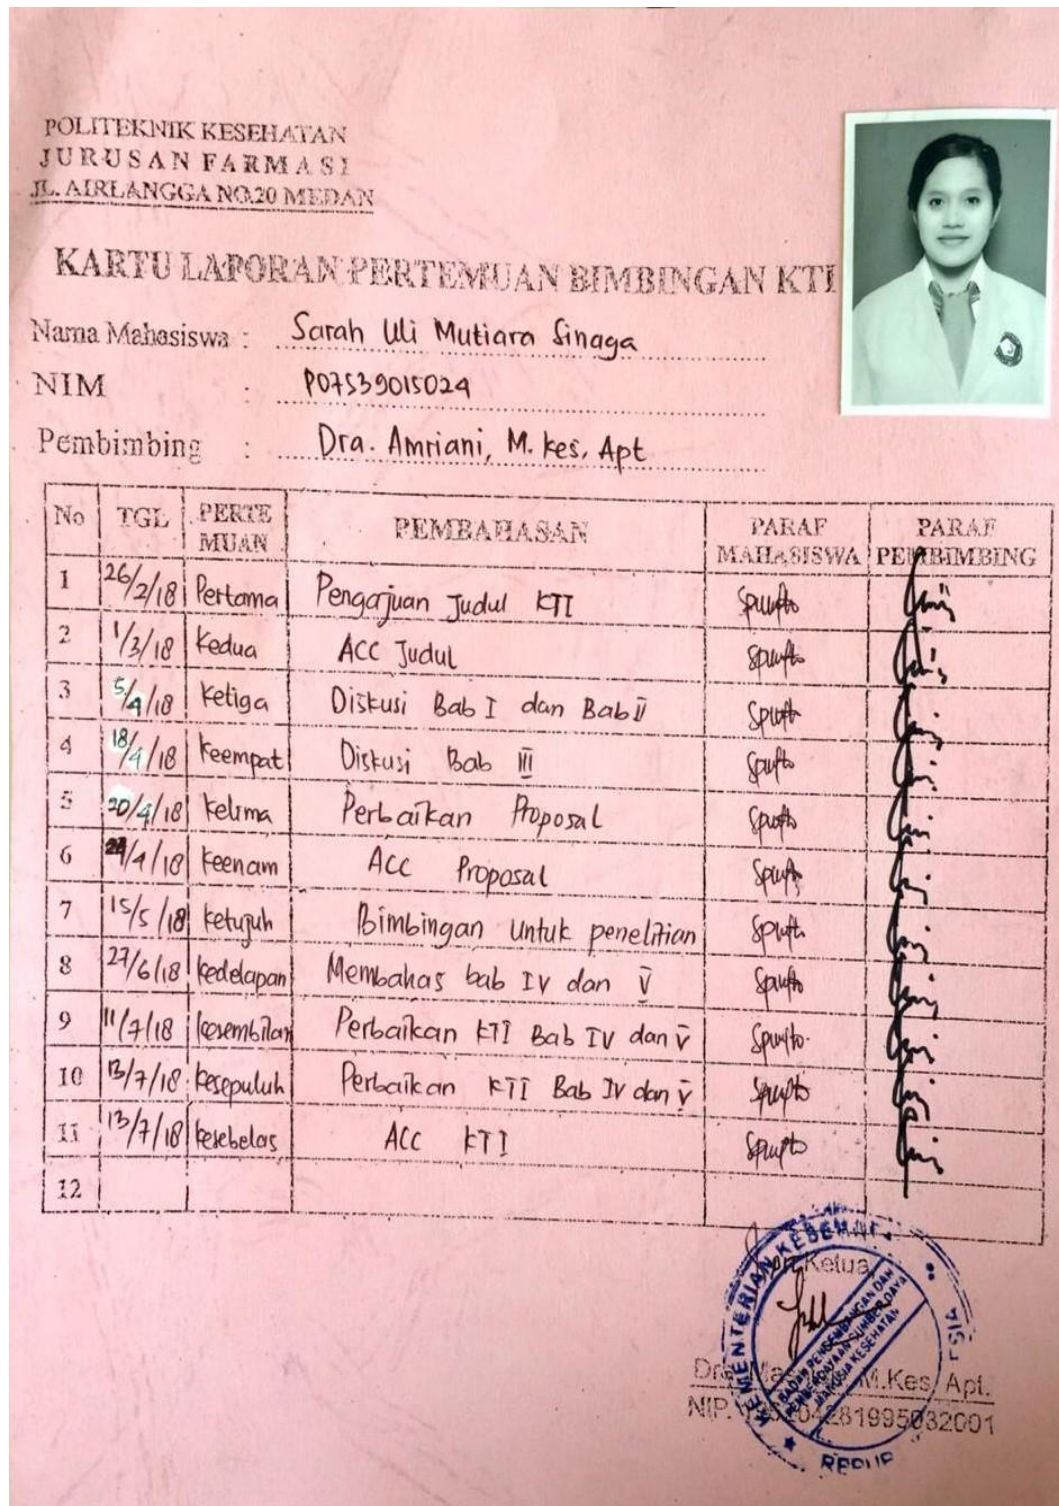 POLITEKNIK KESEHATAN
JURUSAN FARMASI
JL. AIRLANGGA NO.20 MEDAN
KARTU LAPORAN PERTEMUAN BIMBINGAN KTI
Nama Mahasiswa : Sarah Uli Mutiara Sinaga
NIM : P07539015024
Pembimbing : Dra. Amriani, M. Kes, Apt
No TGL PERTE MUAN PEMBAHASAN PARAF MAHASISWA PARAF PEMBIMBING
1 26/2/18 Pertama Pengajuan Judul KTI
2 1/3/18 Kedua ACC Judul
3 5/4/18 Ketiga Diskusi Bab I dan Bab II
4 18/4/18 Keempat Diskusi Bab III
5 20/4/18 Kelima Perbaikan Proposal
6 /4/18 Keenam ACC Proposal
7 15/5/18 Ketujuh Bimbingan Untuk penelitian
8 27/6/18 Kedelapan Membahas bab IV dan V
9 11/7/18 Kesembilan Perbaikan KTI Bab IV dan V
10 13/7/18 Kesepuluh Perbaikan KTI Bab IV dan V
11 13/7/18 Kesebelas ACC KTI
12
Ketua
M.Kes, Apt.
NIP. 281995032001
KEMENTERIAN KESEHAT
BADAN PENGEMBANGAN DAN
PEMBERDAYAAN SUMBER DAYA
MANUSIA KESEHATAN